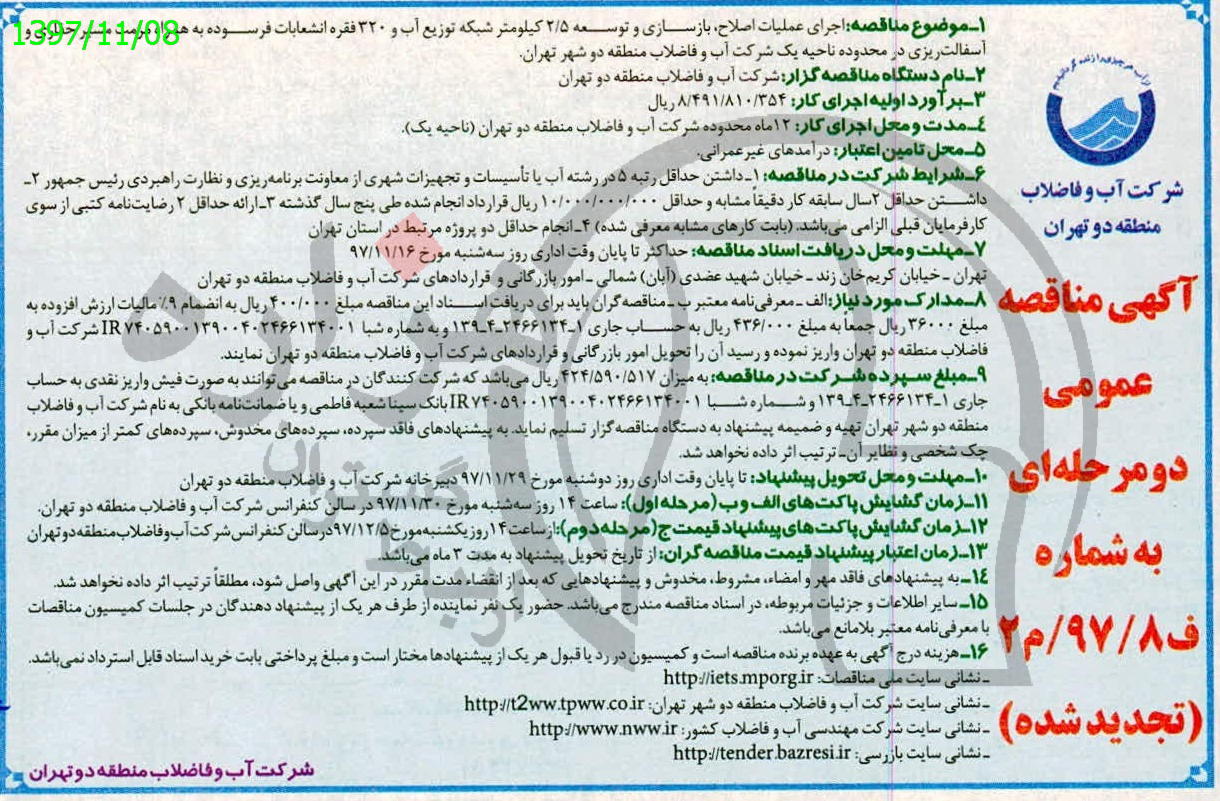 1397/11/08
از آب هر چیزی را زنده گردانیدیم
شرکت آب و فاضلاب
منطقه دو تهران
آگهی مناقصه
عمومی
دو مرحله‌ای
به شماره
ف۹۷/۸/م۲
(تجدید شده)
۱ـ موضوع مناقصه: اجرای عملیات اصلاح، بازسازی و توسعه ۲/۵ کیلومتر شبکه توزیع آب و ۳۲۰ فقره انشعابات فرسوده به همراه مرمت مسیر حفاری و
آسفالت‌ریزی در محدوده ناحیه یک شرکت آب و فاضلاب منطقه دو شهر تهران.
۲ـ نام دستگاه مناقصه گزار: شرکت آب و فاضلاب منطقه دو تهران
۳ـ برآورد اولیه اجرای کار: ۸/۴۹۱/۸۱۰/۳۵۴ ریال
۴ـ مدت و محل اجرای کار: ۱۲ماه محدوده شرکت آب و فاضلاب منطقه دو تهران (ناحیه یک).
۵ـ محل تامین اعتبار: درآمدهای غیرعمرانی.
۶ـ شرایط شرکت در مناقصه: ۱ـ داشتن حداقل رتبه ۵ در رشته آب یا تأسیسات و تجهیزات شهری از معاونت برنامه‌ریزی و نظارت راهبردی رئیس جمهور ۲ـ
داشتن حداقل ۲سال سابقه کار دقیقاً مشابه و حداقل ۱۰/۰۰۰/۰۰۰/۰۰۰ ریال قرارداد انجام شده طی پنج سال گذشته ۳ـ ارائه حداقل ۲ رضایت‌نامه کتبی از سوی
کارفرمایان قبلی الزامی می‌باشد. (بابت کارهای مشابه معرفی شده) ۴ـ انجام حداقل دو پروژه مرتبط در استان تهران
۷ـ مهلت و محل دریافت اسناد مناقصه: حداکثر تا پایان وقت اداری روز سه‌شنبه مورخ ۹۷/۱۱/۱۶
تهران ـ خیابان کریم‌خان زند ـ خیابان شهید عضدی (آبان) شمالی ـ امور بازرگانی و قراردادهای شرکت آب و فاضلاب منطقه دو تهران
۸ـ مدارک مورد نیاز: الف ـ معرفی‌نامه معتبر ب ـ مناقصه‌گران باید برای دریافت اسناد این مناقصه مبلغ ۴۰۰/۰۰۰ ریال به انضمام ۹٪ مالیات ارزش افزوده به
مبلغ ۳۶۰۰۰ ریال جمعاً به مبلغ ۴۳۶/۰۰۰ ریال به حساب جاری ۱ـ۲۴۶۶۱۳۴ـ۴ـ۱۳۹ و به شماره شبا IR۷۴۰۵۹۰۰۱۳۹۰۰۴۰۲۴۶۶۱۳۴۰۰۱ شرکت آب و
فاضلاب منطقه دو تهران واریز نموده و رسید آن را تحویل امور بازرگانی و قراردادهای شرکت آب و فاضلاب منطقه دو تهران نمایند.
۹ـ مبلغ سپرده شرکت در مناقصه: به میزان ۴۲۴/۵۹۰/۵۱۷ ریال می‌باشد که شرکت کنندگان در مناقصه می‌توانند به صورت فیش واریز نقدی به حساب
جاری ۱ـ۲۴۶۶۱۳۴ـ۴ـ۱۳۹ و شماره شبا IR۷۴۰۵۹۰۰۱۳۹۰۰۴۰۲۴۶۶۱۳۴۰۰۱ بانک سینا شعبه فاطمی و یا ضمانت‌نامه بانکی به نام شرکت آب و فاضلاب
منطقه دو شهر تهران تهیه و ضمیمه پیشنهاد به دستگاه مناقصه‌گزار تسلیم نماید. به پیشنهادهای فاقد سپرده، سپرده‌های مخدوش، سپرده‌های کمتر از میزان مقرر،
چک شخصی و نظایر آن ـ ترتیب اثر داده نخواهد شد.
۱۰ـ مهلت و محل تحویل پیشنهاد: تا پایان وقت اداری روز دوشنبه مورخ ۹۷/۱۱/۲۹ دبیرخانه شرکت آب و فاضلاب منطقه دو تهران
۱۱ـ زمان گشایش پاکت‌های الف و ب (مرحله اول): ساعت ۱۴ روز سه‌شنبه مورخ ۹۷/۱۱/۳۰ در سالن کنفرانس شرکت آب و فاضلاب منطقه دو تهران.
۱۲ـ زمان گشایش پاکت‌های پیشنهاد قیمت ج (مرحله دوم): از ساعت ۱۴ روز یکشنبه مورخ ۹۷/۱۲/۵ در سالن کنفرانس شرکت آب و فاضلاب منطقه دو تهران
۱۳ـ زمان اعتبار پیشنهاد قیمت مناقصه گران: از تاریخ تحویل پیشنهاد به مدت ۳ ماه می‌باشد.
۱۴ـ به پیشنهادهای فاقد مهر و امضاء، مشروط، مخدوش و پیشنهادهایی که بعد از انقضاء مدت مقرر در این آگهی واصل شود، مطلقاً ترتیب اثر داده نخواهد شد.
۱۵ـ سایر اطلاعات و جزئیات مربوطه، در اسناد مناقصه مندرج می‌باشد. حضور یک نفر نماینده از طرف هر یک از پیشنهاد دهندگان در جلسات کمیسیون مناقصات
با معرفی‌نامه معتبر بلامانع می‌باشد.
۱۶ـ هزینه درج آگهی به عهده برنده مناقصه است و کمیسیون در رد یا قبول هر یک از پیشنهادها مختار است و مبلغ پرداختی بابت خرید اسناد قابل استرداد نمی‌باشد.
ـ نشانی سایت ملی مناقصات: http://iets.mporg.ir
ـ نشانی سایت شرکت آب و فاضلاب منطقه دو شهر تهران: http://t2ww.tpww.co.ir
ـ نشانی سایت شرکت مهندسی آب و فاضلاب کشور: http://www.nww.ir
ـ نشانی سایت بازرسی: http://tender.bazresi.ir
شرکت آب و فاضلاب منطقه دو تهران